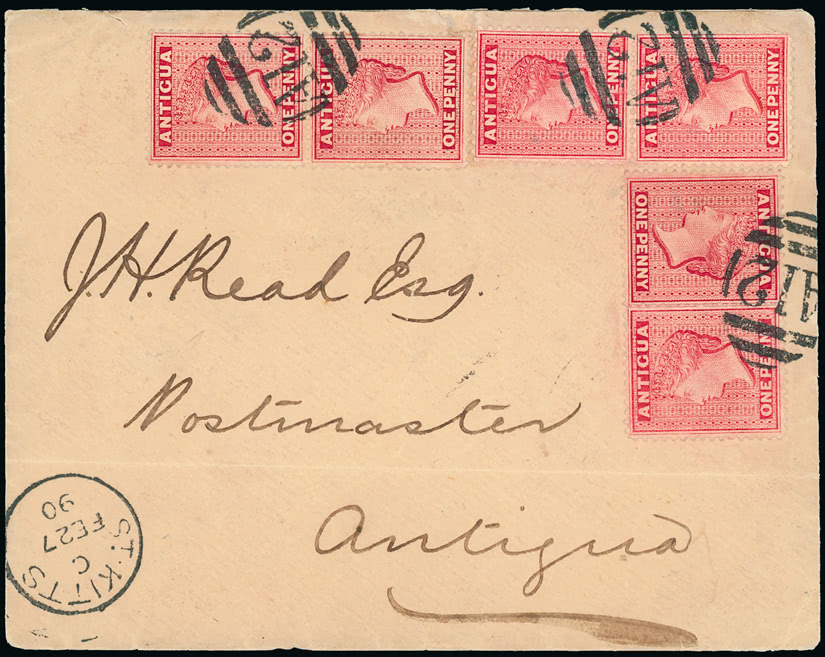 ANTIGUA ONE PENNY
ANTIGUA ONE PENNY
ANTIGUA ONE PENNY
ANTIGUA ONE PENNY
A12
A12
ANTIGUA ONE PENNY
A12
ANTIGUA ONE PENNY
J.H. Read Esq.
Postmaster
Antigua
ST. KITTS
C
FE 27
90